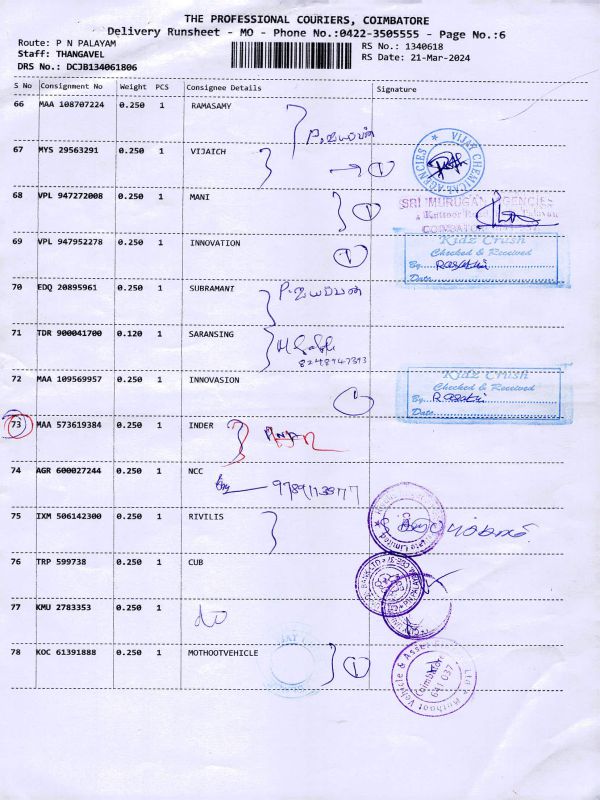 THE PROFESSIONAL COURIERS, COIMBATORE
Delivery Runsheet - MO - Phone No.:0422-3505555 - Page No.:6
Route: P N PALAYAM
RS No.: 1340618
Staff: THANGAVEL
RS Date: 21-Mar-2024
DRS No.: DCJB134061806
S No Consignment No Weight PCS Consignee Details Signature
66 MAA 108707224 0.250 1 RAMASAMY
67 MYS 29563291 0.250 1 VIJAICH
1
VIJAY CHEMICAL AGENCIES
68 VPL 947272008 0.250 1 MANI
1
SRI MURUGAN AGENCIES
69 VPL 947952278 0.250 1 INNOVATION
1
Kidz Crush
Checked & Received
By
Date
70 EDQ 20895961 0.250 1 SUBRAMANI
71 TDR 900041700 0.120 1 SARANSING
8248947393
72 MAA 109569957 0.250 1 INNOVASION
1
Kidz Crush
Checked & Received
By
Date
73 MAA 573619384 0.250 1 INDER
74 AGR 600027244 0.250 1 NCC
75 IXM 506142300 0.250 1 RIVILIS
Limited
76 TRP 599738 0.250 1 CUB
77 KMU 2783353 0.250 1
do
78 KOC 61391888 0.250 1 MOTHOOTVEHICLE
1
Muthoot Vehicle & Asset
Coimbatore
641 037